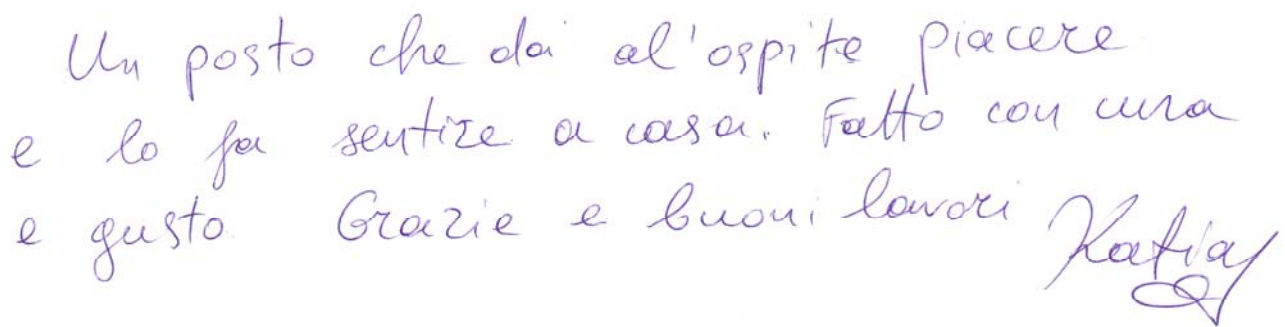 Un posto che da al'ospite piacere
e lo fa sentire a casa. Fatto con cura
e gusto Grazie e buoni lavori
Katia